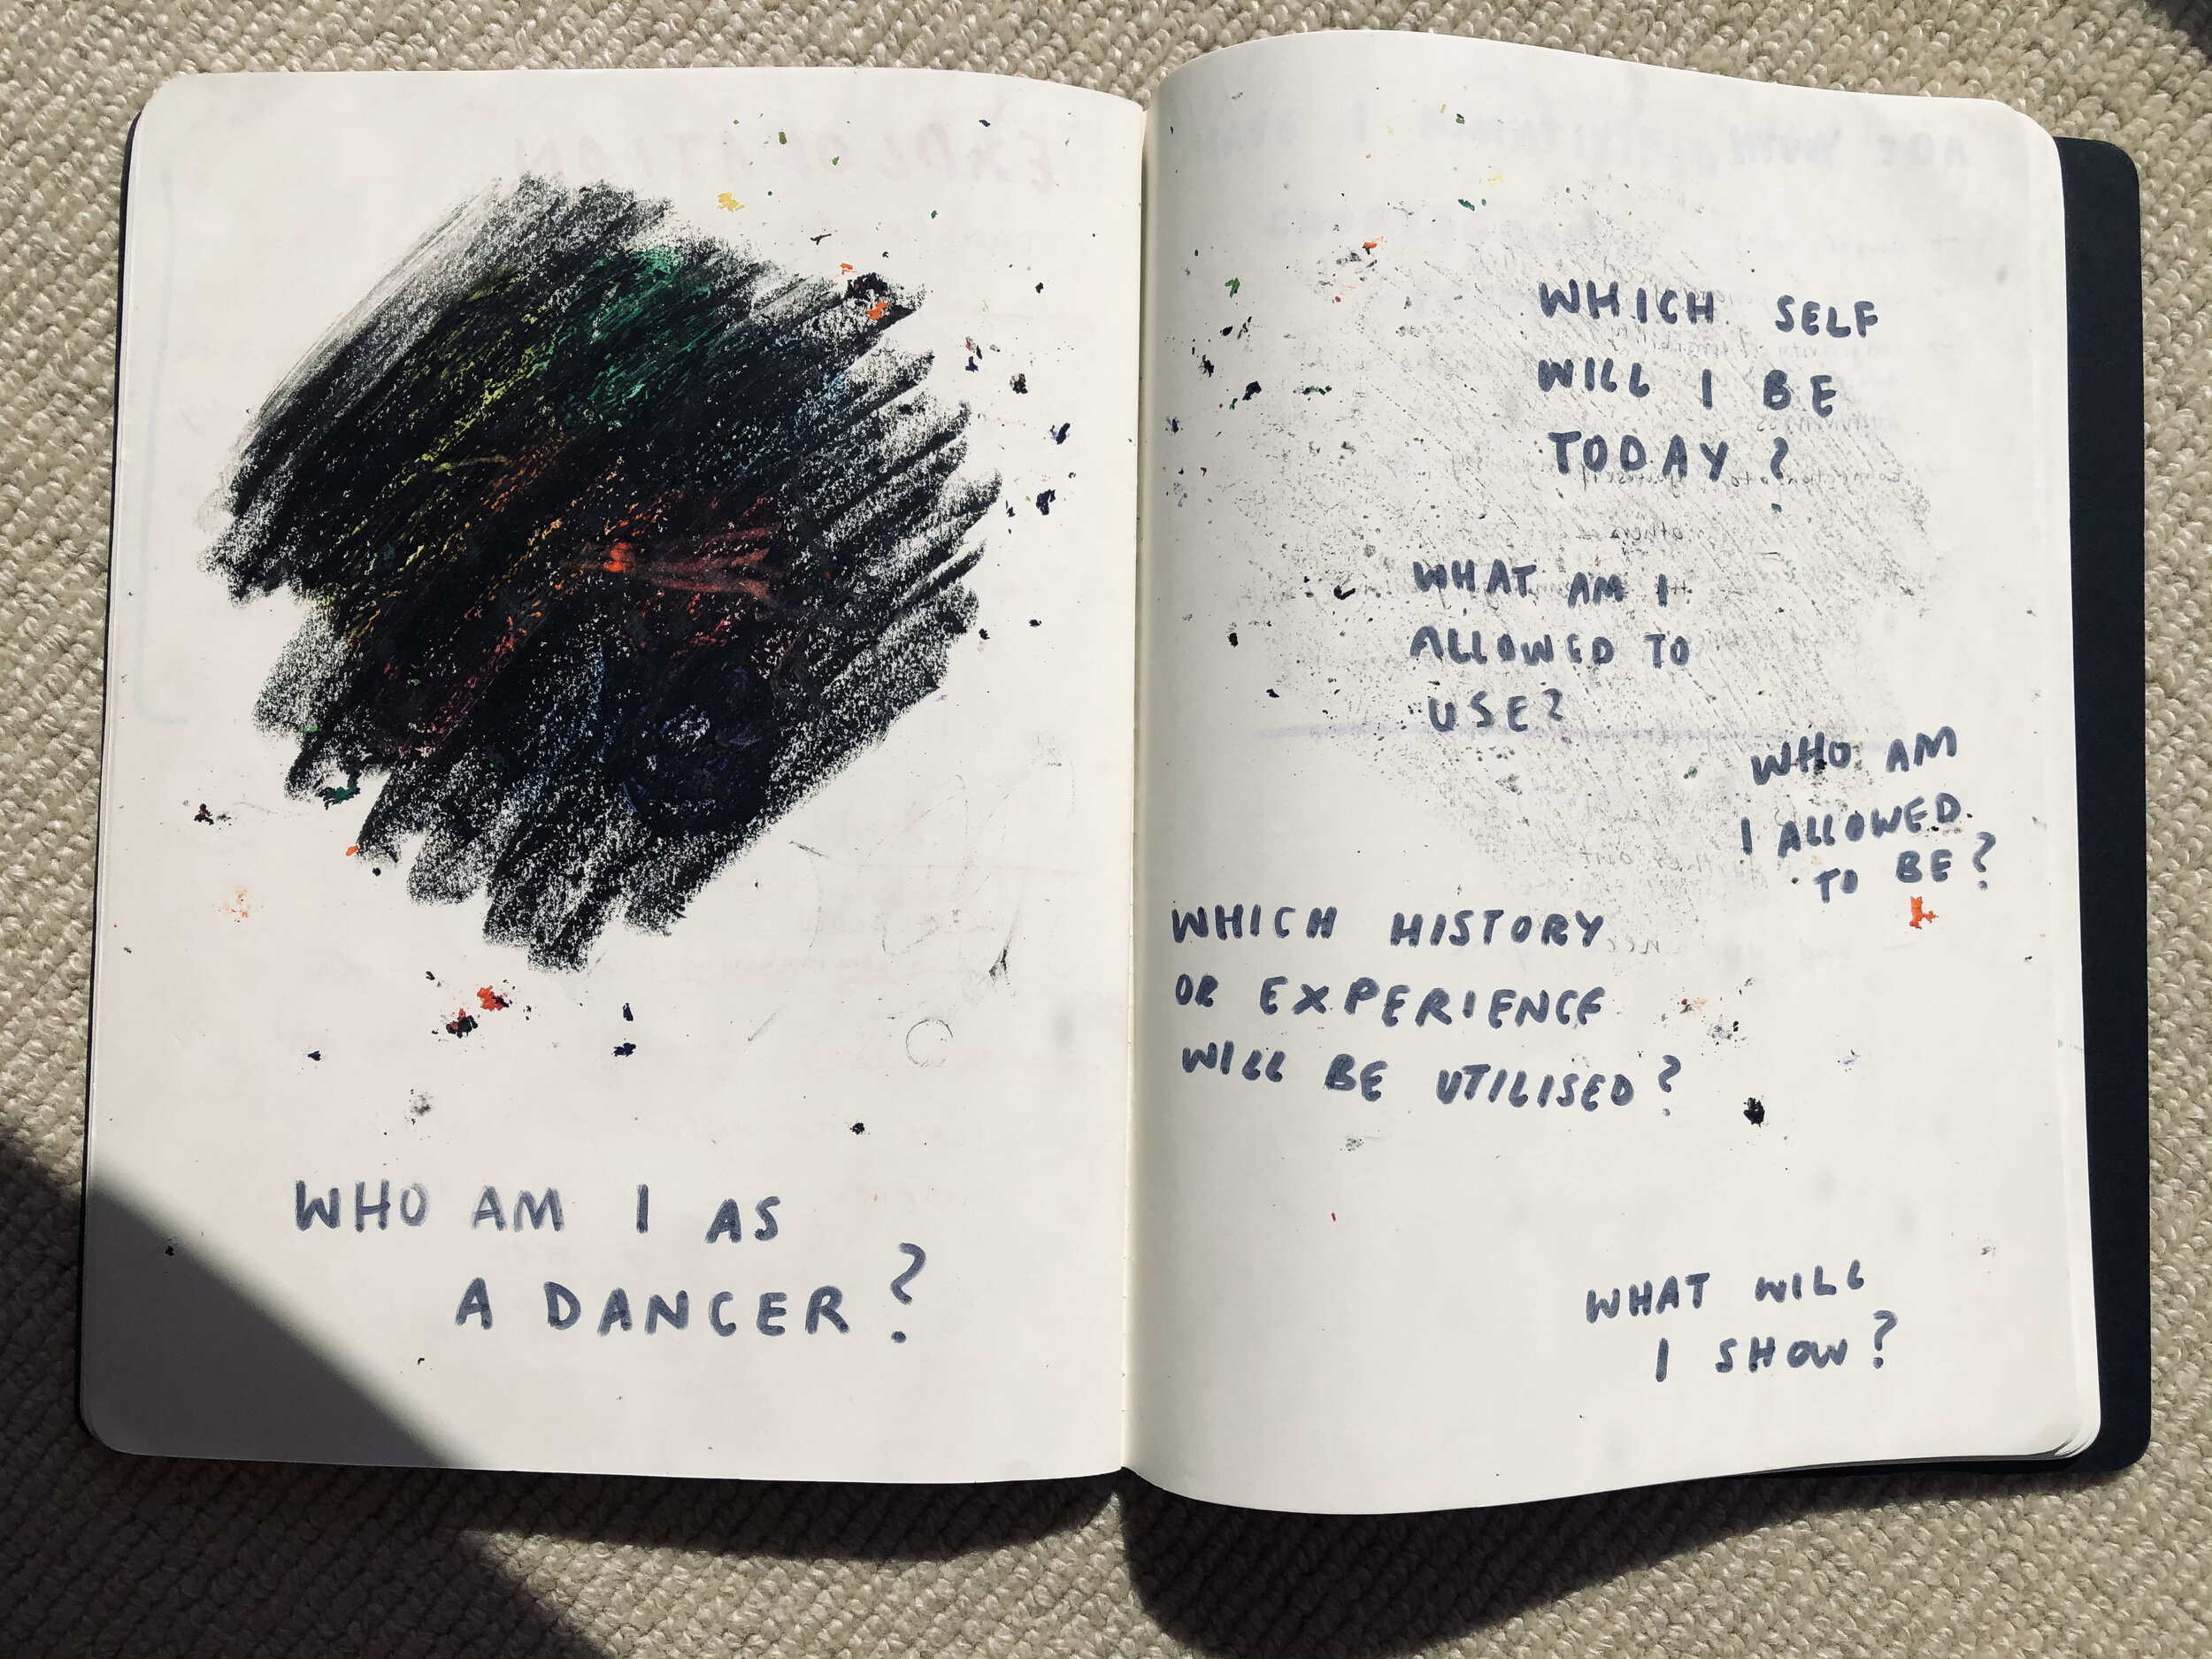 WHO AM I AS
A DANCER?
WHICH SELF
WILL I BE
TODAY?
WHAT AM I
ALLOWED TO
USE?
WHO AM
I ALLOWED
TO BE?
WHICH HISTORY
OR EXPERIENCE
WILL BE UTILISED?
WHAT WILL
I SHOW?